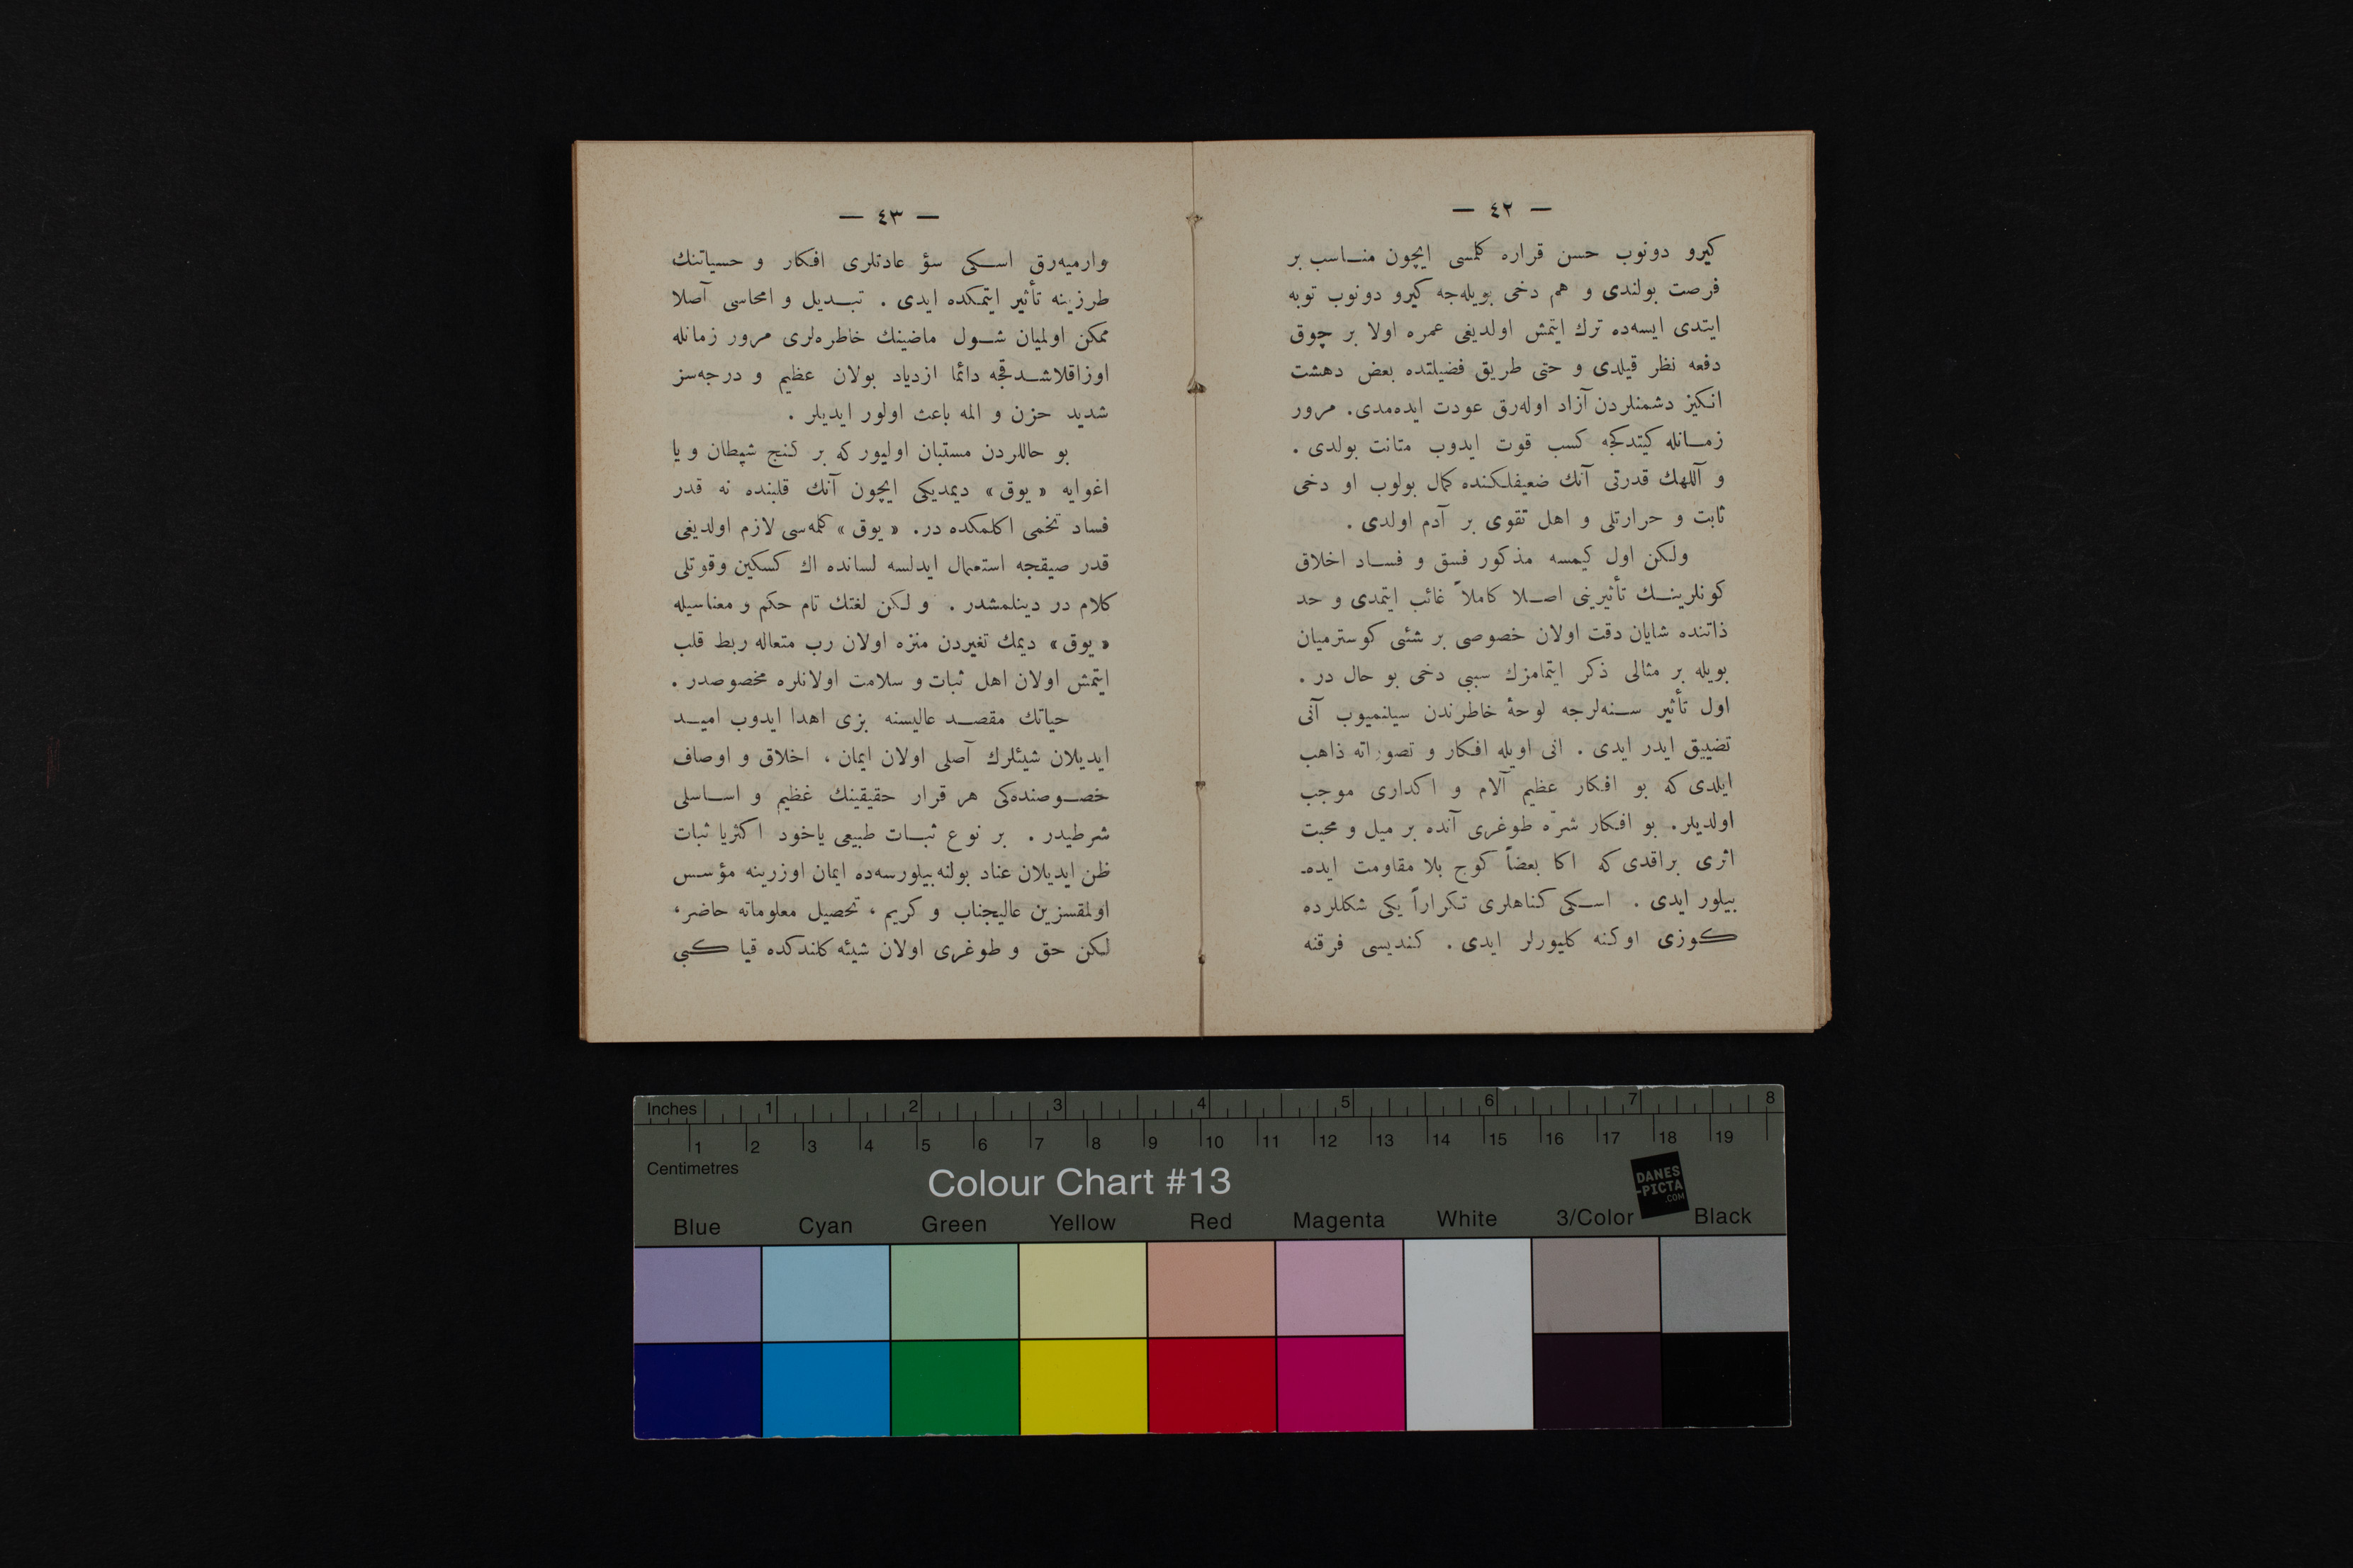 — ٤٢ —
كیرو دونوب حسن قراره كلمسی ایچون منـاسب بر
فرصت بولندی و هم دخی بویله‌جه كیرو دونوب توبه
ایتدی ایسه‌ده ترك ایتمش اولدیغی عمره اولا بر چوق
دفعه نظر قیلدی و حتی طریق فضیلتده بعض دهشت
انكیز دشمنلردن آزاد اوله‌رق عودت ایده‌مدی. مرور
زمـانله كیتدكجه كسب قوت ایدوب متانت بولدی .
و آللهك قدرتی آنك ضعیفلكنده كمال بولوب او دخی
ثابت و حرارتلی و اهل تقوی بر آدم اولدی .
ولكن اول كیمسه مذكور فسق و فسـاد اخلاق
كونلرینـك تأثیرینی اصـلا كاملاً غائب ایتمدی و حد
ذاتنده شایان دقت اولان خصوصی بر شئی كوسترمیان
بویله بر مثالی ذكر ایتمامزك سببی دخی بو حال در .
اول تأثیر سـنه‌لرجه لوحۀ خاطرندن سیلنمیوب آنی
تضییق ایدر ایدی . انی اویله افكار و تصوراته ذاهب
ایلدی كه بو افكار عظیم آلام و اكداری موجب
اولدیلر. بو افكار شرّه طوغری آنده بر میل و محبت
اثری براقدی كه اكا بعضاً كوج بلا مقاومت ایده‌ـ
بیلور ایدی . اسـكی كناهلری تكراراً یكی شكللرده
كوزی اوكنه كلیورلر ایدی . كندیسی فرقنه
— ٤٣ —
وارمیه‌رق اسـكی سؤ عادتلری افكار و حسیاتنك
طرزینه تأثیر ایتمكده ایدی . تبـدیل و امحاسی آصلا
ممكن اولمیان شـول ماضینك خاطره‌لری مرور زمانله
اوزاقلاشـدقجه دائما ازدیاد بولان عظیم و درجه‌سز
شدید حزن و المه باعث اولور ایدیلر .
بو حاللردن مستبان اولیور كه بر كنج شیطان و یا
اغوایه « یوق » دیمدیكی ایچون آنك قلبنده نه قدر
فساد تخمی اكلمكده در. « یوق » كلمه‌سی لازم اولدیغی
قدر صیقجه استعمال ایدلسه لسانده اك كسكین وقوتلی
كلام در دینلمشدر . و لكن لغتك تام حكم و معناسیله
« یوق » دیمك تغیردن منزه اولان رب متعاله ربط قلب
ایتمش اولان اهل ثبات و سلامت اولانلره مخصوصدر .
حیاتك مقصـد عالیسنه بزی اهدا ایدوب امیـد
ایدیلان شیئلرك آصلی اولان ایمان ، اخلاق و اوصاف
خصـوصنده‌كی هر قرار حقیقینك غظیم و اسـاسلی
شرطیدر . بر نوع ثبـات طبیعی یاخود اكثریا ثبات
ظن ایدیلان عناد بولنه بیلورسه‌ده ایمان اوزرینه مؤسس
اولمقسزین عالیجناب و كریم ، تحصیل معلوماته حاضر،
لكن حق و طوغری اولان شیئه كلندكده قیا كـبی
Inches 1 2 3 4 5 6 7 8
1 2 3 4 5 6 7 8 9 10 11 12 13 14 15 16 17 18 19
Centimetres
Colour Chart #13
DANES
-PICTA
.COM
Blue Cyan Green Yellow Red Magenta White 3/Color Black